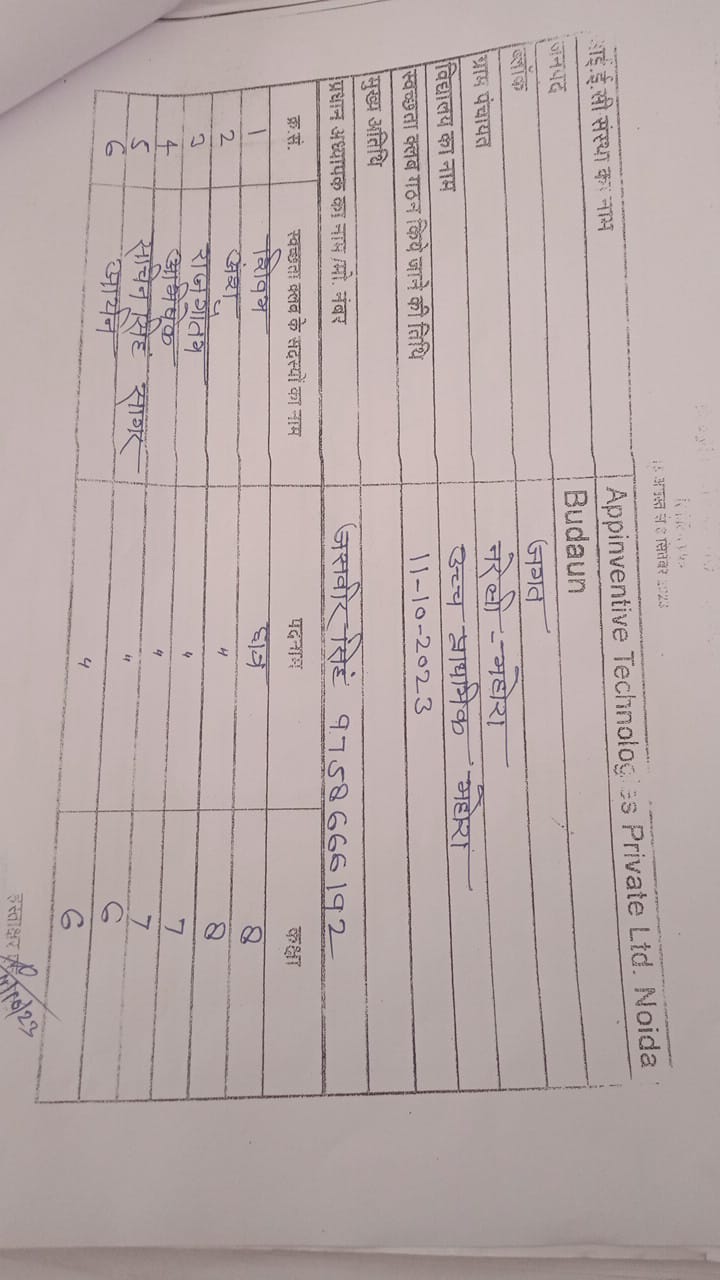 16 अगस्त से 8 सितंबर 2023
आई.ई.सी संस्था का नाम Appinventive Technologies Private Ltd. Noida
जनपद Budaun
ब्लॉक जगत
ग्राम पंचायत नरेली - मेहोरा
विद्यालय का नाम उच्च प्राथमिक मेहोरा
स्वच्छता क्लब गठन किये जाने की तिथि 11-10-2023
मुख्य अतिथि
प्रधान अध्यापक का नाम /मो. नंबर जसवीर सिंह 9758666192
क्र.सं. स्वच्छता क्लब के सदस्यों का नाम पदनाम कक्षा
1 शिवम छात्र 8
2 अंश " 8
3 राज गौतम " 7
4 अभिषेक " 7
5 सचिन सिंह सागर " 6
6 " 6
हस्ताक्षर
11/10/23